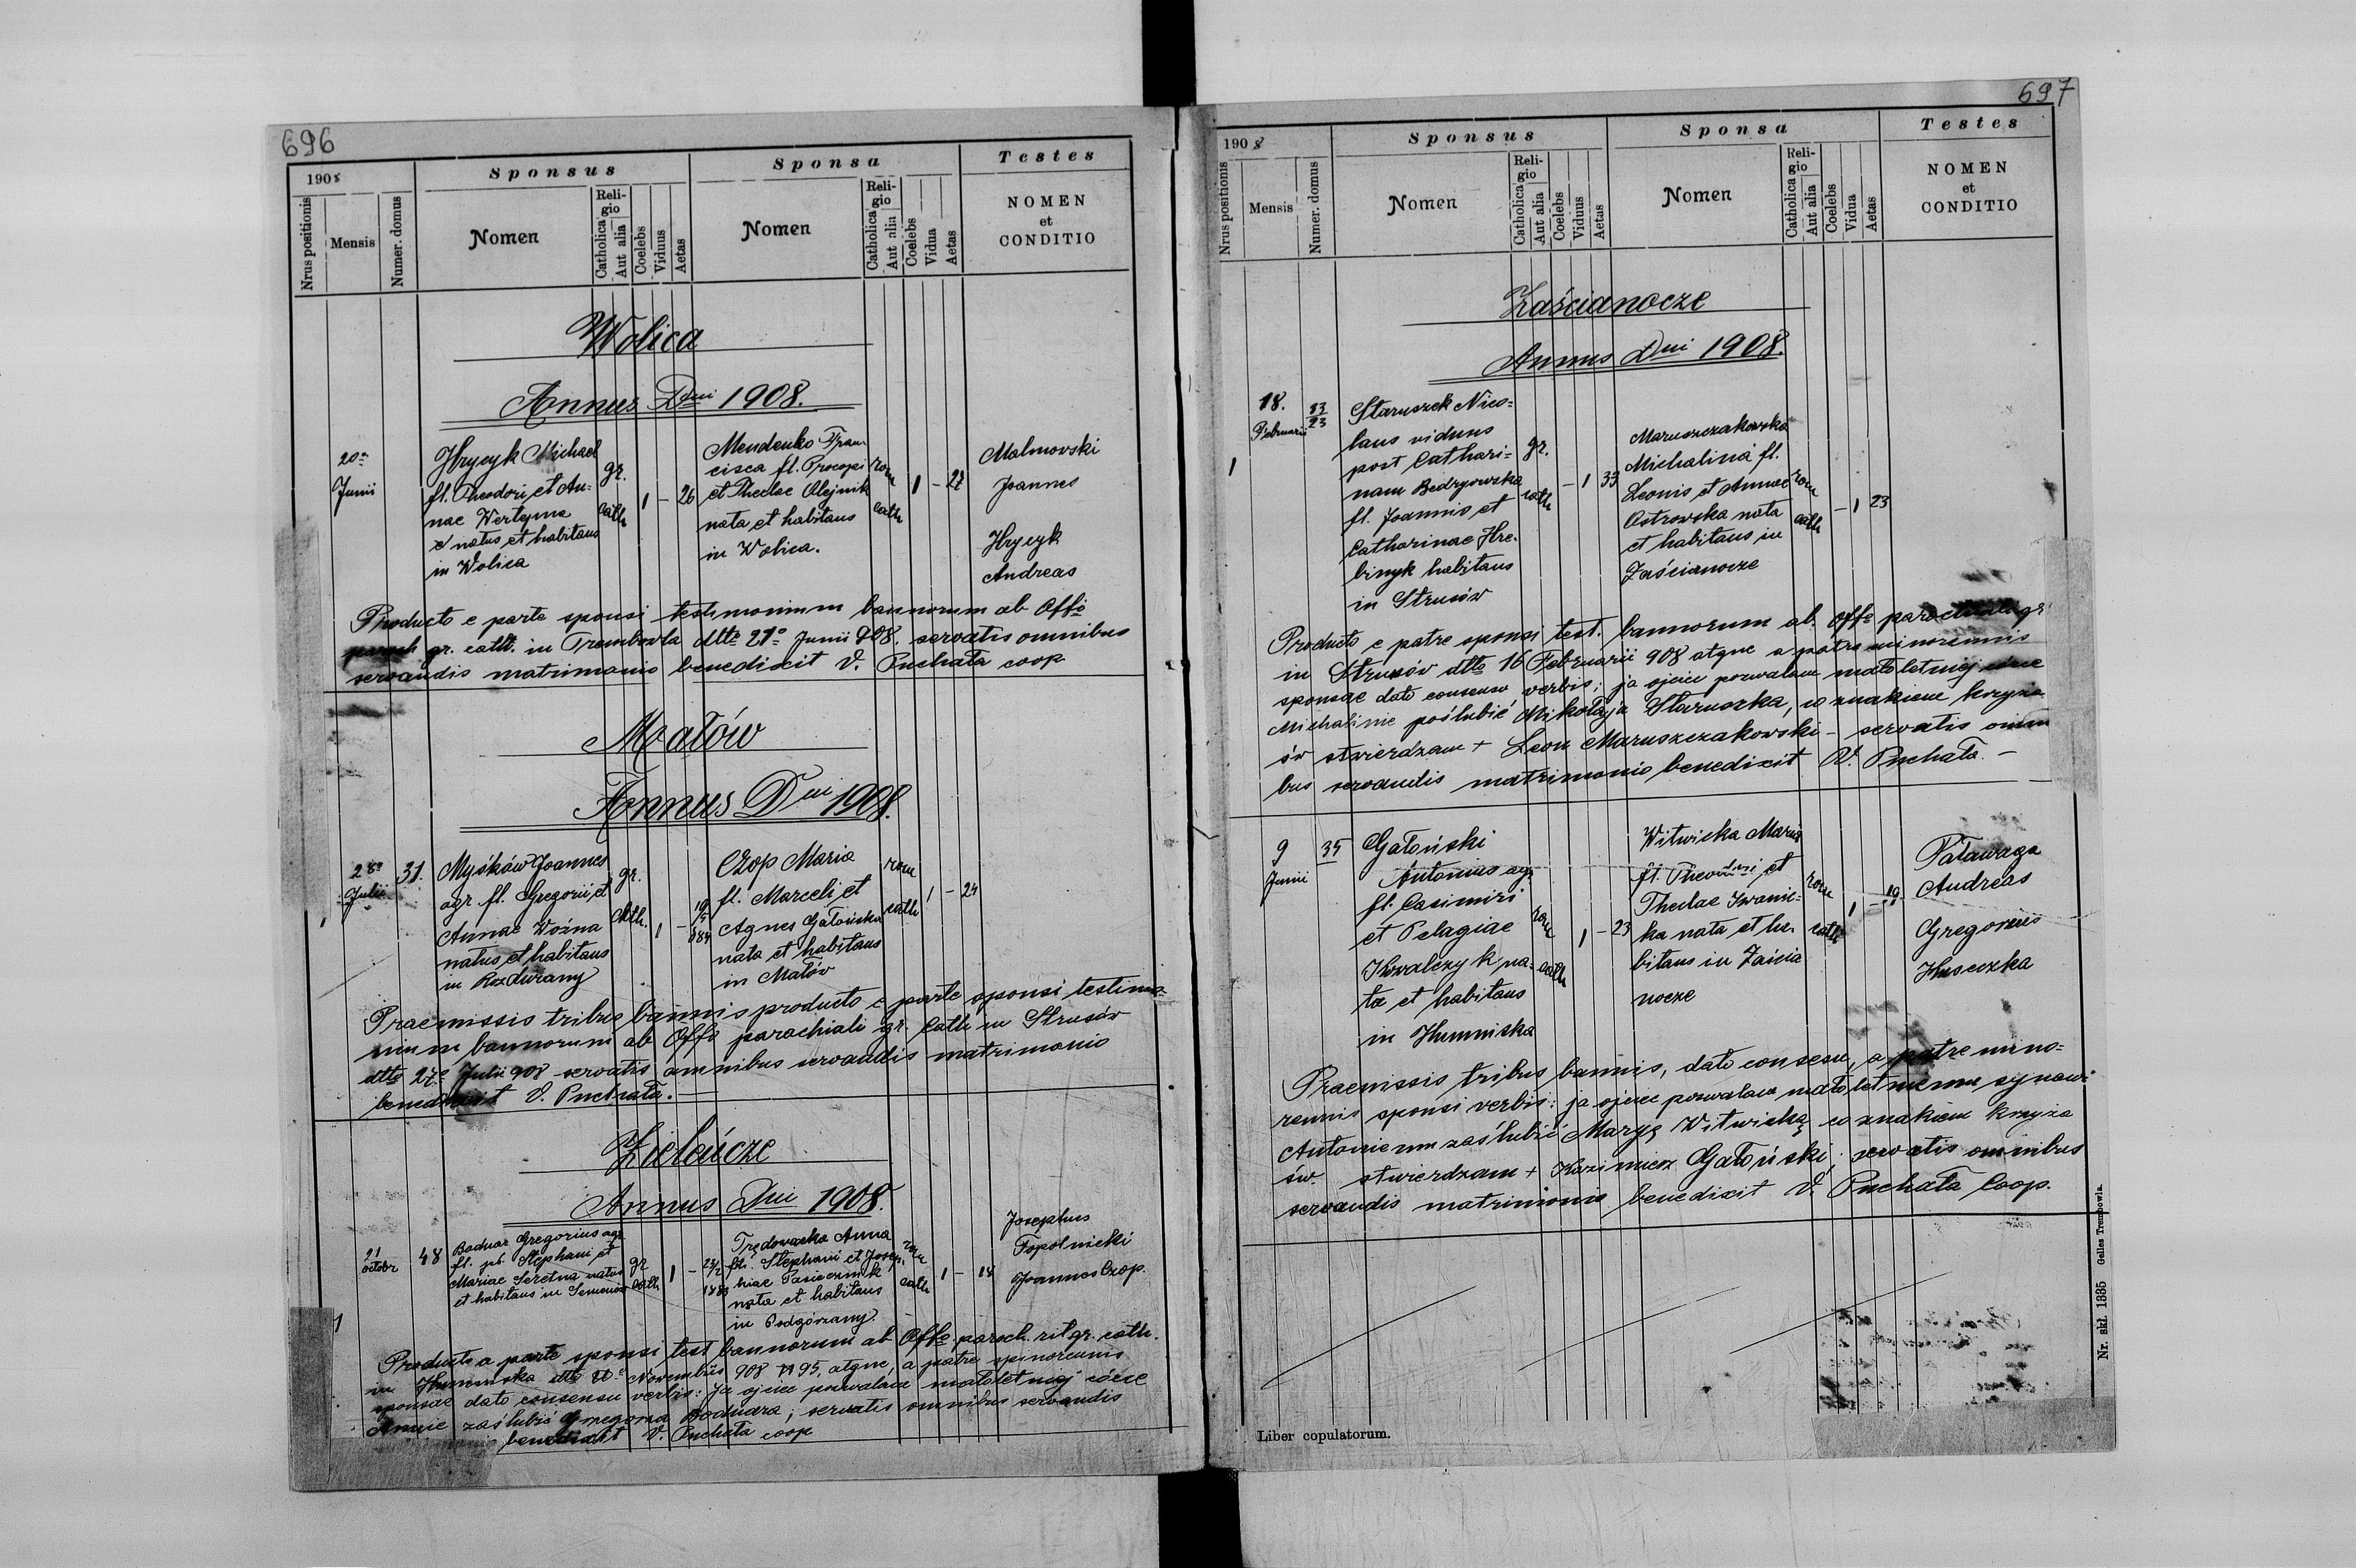 696
1908
Sponsus
Sponsa
Testes
Nrus positionis
Mensis
Numer. domus
Nomen
Religio
Catholica
Aut alia
Coelebs
Viduus
Aetas
Nomen
Religio
Catholica
Aut alia
Coelebs
Vidua
Aetas
NOMEN
et
CONDITIO
Wolica
Annus Dni 1908.
20
Junii
Hrycyk Michael
fl. Theodori et An-
nae Wertyma
natus et habitans
in Wolica
gr.
cath
1 - 26
Mendenko Fran
cisca fl. Procopi
et Theclae Olejnik
nata et habitans
in Wolica.
rom
cath
1 - 22
Malinovski
Joannes
Hrycyk
Andreas
Producto e parte sponsi testimonium bannorum ab Offo
paroch gr. cath. in Trembowla dtto 21o Junii 908. servatis omnibus
servandis matrimonio benedixit V. Puchała coop
Małów
Annus Dni 1908.
1
28
Julii
31.
Myśków Joannes
agr. fl. Gregorii et
Annae Woźna
natus et habitans
in Rozdwiany
gr.
cath.
1 - 19/5 884
Czop Maria
fl. Marceli et
Agnes Gałońska
nata et habitans
in Małów
rom
cath
1 - 24
Praemissis tribus bannis producto e parte sponsi testimo-
nium bannorum ab Offo parochiali gr. Cath in Strusów
dtto 27o Julii 908 servatis omnibus servandis matrimonio
benedixit V. Puchała.
Zieleńcze
Annus Dni 1908.
1
21
octobr
48
Bodnar Gregorius agr.
fl. Stephani et
Mariae Seretna natus
et habitans in Semenów
gr
cath
1 - 23/2 1883
Trędowacka Anna
fl. Stephani et Josep
hiae Pasiecznik
nata et habitans
in Podgórzany.
rom
cath
1 - 18
Josephus
Topolnicki
Joannes Czop.
Producto a parte sponsi test bannorum ab Offo paroch. rit gr. cath.
in Humniska dtto Novembris 908 N 95, atque, a patre minorennis
sponsae dato consensu verbis: Ja ojciec pozwalam małoletniej córce
Annie zaślubić Gregorza Bodnara; servatis omnibus servandis
benedixit V. Puchała coop
697
1908
Sponsus
Sponsa
Testes
Nrus positionis
Mensis
Numer. domus
Nomen
Religio
Catholica
Aut alia
Coelebs
Viduus
Aetas
Nomen
Religio
Catholica
Aut alia
Coelebs
Vidua
Aetas
NOMEN
et
CONDITIO
Zaścianocze
Annus Dni 1908.
1
18.
Februarii
23
Staruszek Nico-
laus viduus
post Cathari-
nam Bedryowska
fl. Joannis et
Catharinae Hre-
binyk habitans
in Strusów
gr.
cath
- 1 33
Maruszczakowska
Michalina fl.
Leonis et Annae
Ostrowska nata
et habitans in
Zaścianocze
rom
cath
- 1 23
Producto e patre sponsi test. bannorum ab. offo parochiali gr
in Strusów dtto 16 Februarii 908 atque a patre minorennis
sponsae dato consensu verbis; ja ojciec pozwalam małoletniej córce
Michalinie poślubić Mikołaja Staruszka, co znakiem krzyża
św stwierdzam + Leon Maruszczakowski - servatis omni
bus servandis matrimonio benedixit V. Puchała. -
9
Junii
35
Gałoński
Antonius agr.
fl. Casimiri
et Pelagiae
Kowalczyk na-
ta et habitans
in Humniska
rom
cath
1 - 23
Witwicka Maria
fl. Theodori et
Theclae Iwanic-
ka nata et ha-
bitans in Zaścia
nocze
rom
cath
1 - 19
Patawaga
Andreas
Gregorius
Praemissis tribus bannis, dato consesu, a patre mino-
rennis sponsi verbis: ja ojciec pozwalam małoletniemu synowi
Antoniemu zaślubić Maryę Witwicką co znakiem krzyża
św. stwierdzam + Kazimierz Gałoński; servatis omnibus
servandis matrimonio benedixit V. Puchała Coop.
Liber copulatorum.
Nr. skł. 1335 Gelles Trembowla.